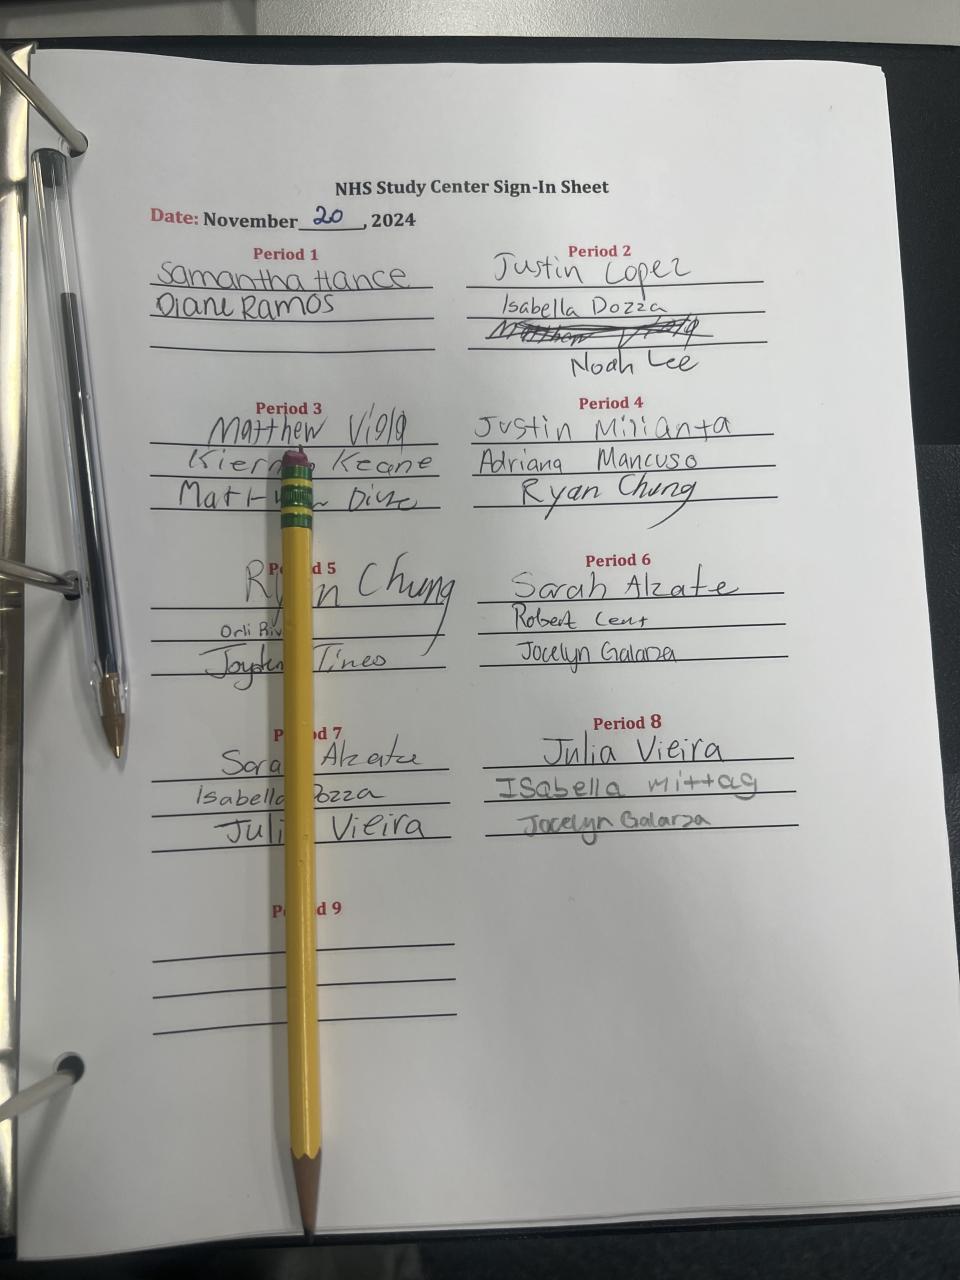 NHS Study Center Sign-In Sheet
Date: November 20, 2024
Period 1
Samantha Hance
Diane Ramos
Period 2
Justin Lopez
Isabella Dozza
Matthew Viola
Noah Lee
Period 3
Matthew Viola
Keane
Period 4
Justin Milianta
Adriana Mancuso
Ryan Chung
5
Chung
Orli
Tineo
Period 6
Sarah Alzate
Robert Cent
Jocelyn Galarza
7
Alzate
Isabella Dozza
Vieira
Period 8
Julia Vieira
Isabella Mittag
Jocelyn Galarza
9